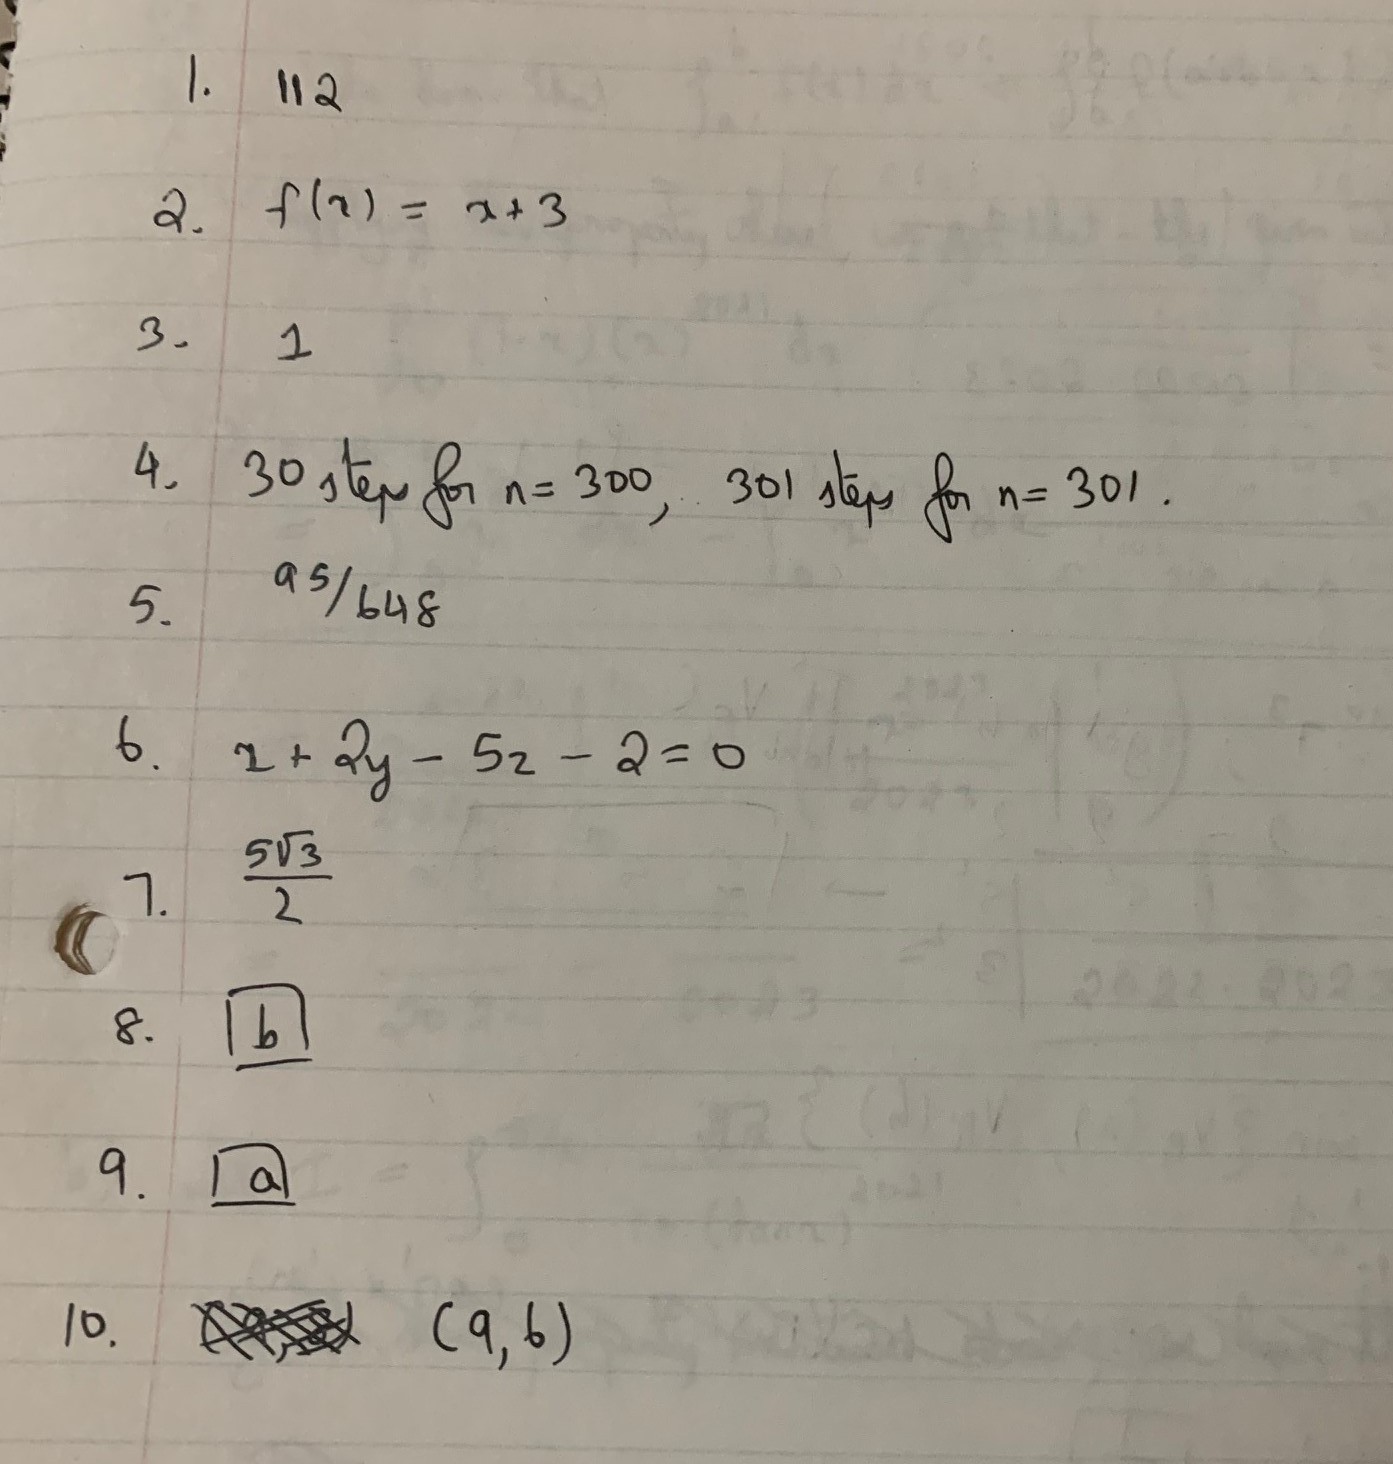 1. 112
2. f(x) = x+3
3. 1
4. 30 steps for n= 300, 301 steps for n= 301.
5. 95/648
6. x + 2y - 5z - 2 = 0
7. 5√3/2
8. b
9. a
10. (9,6)